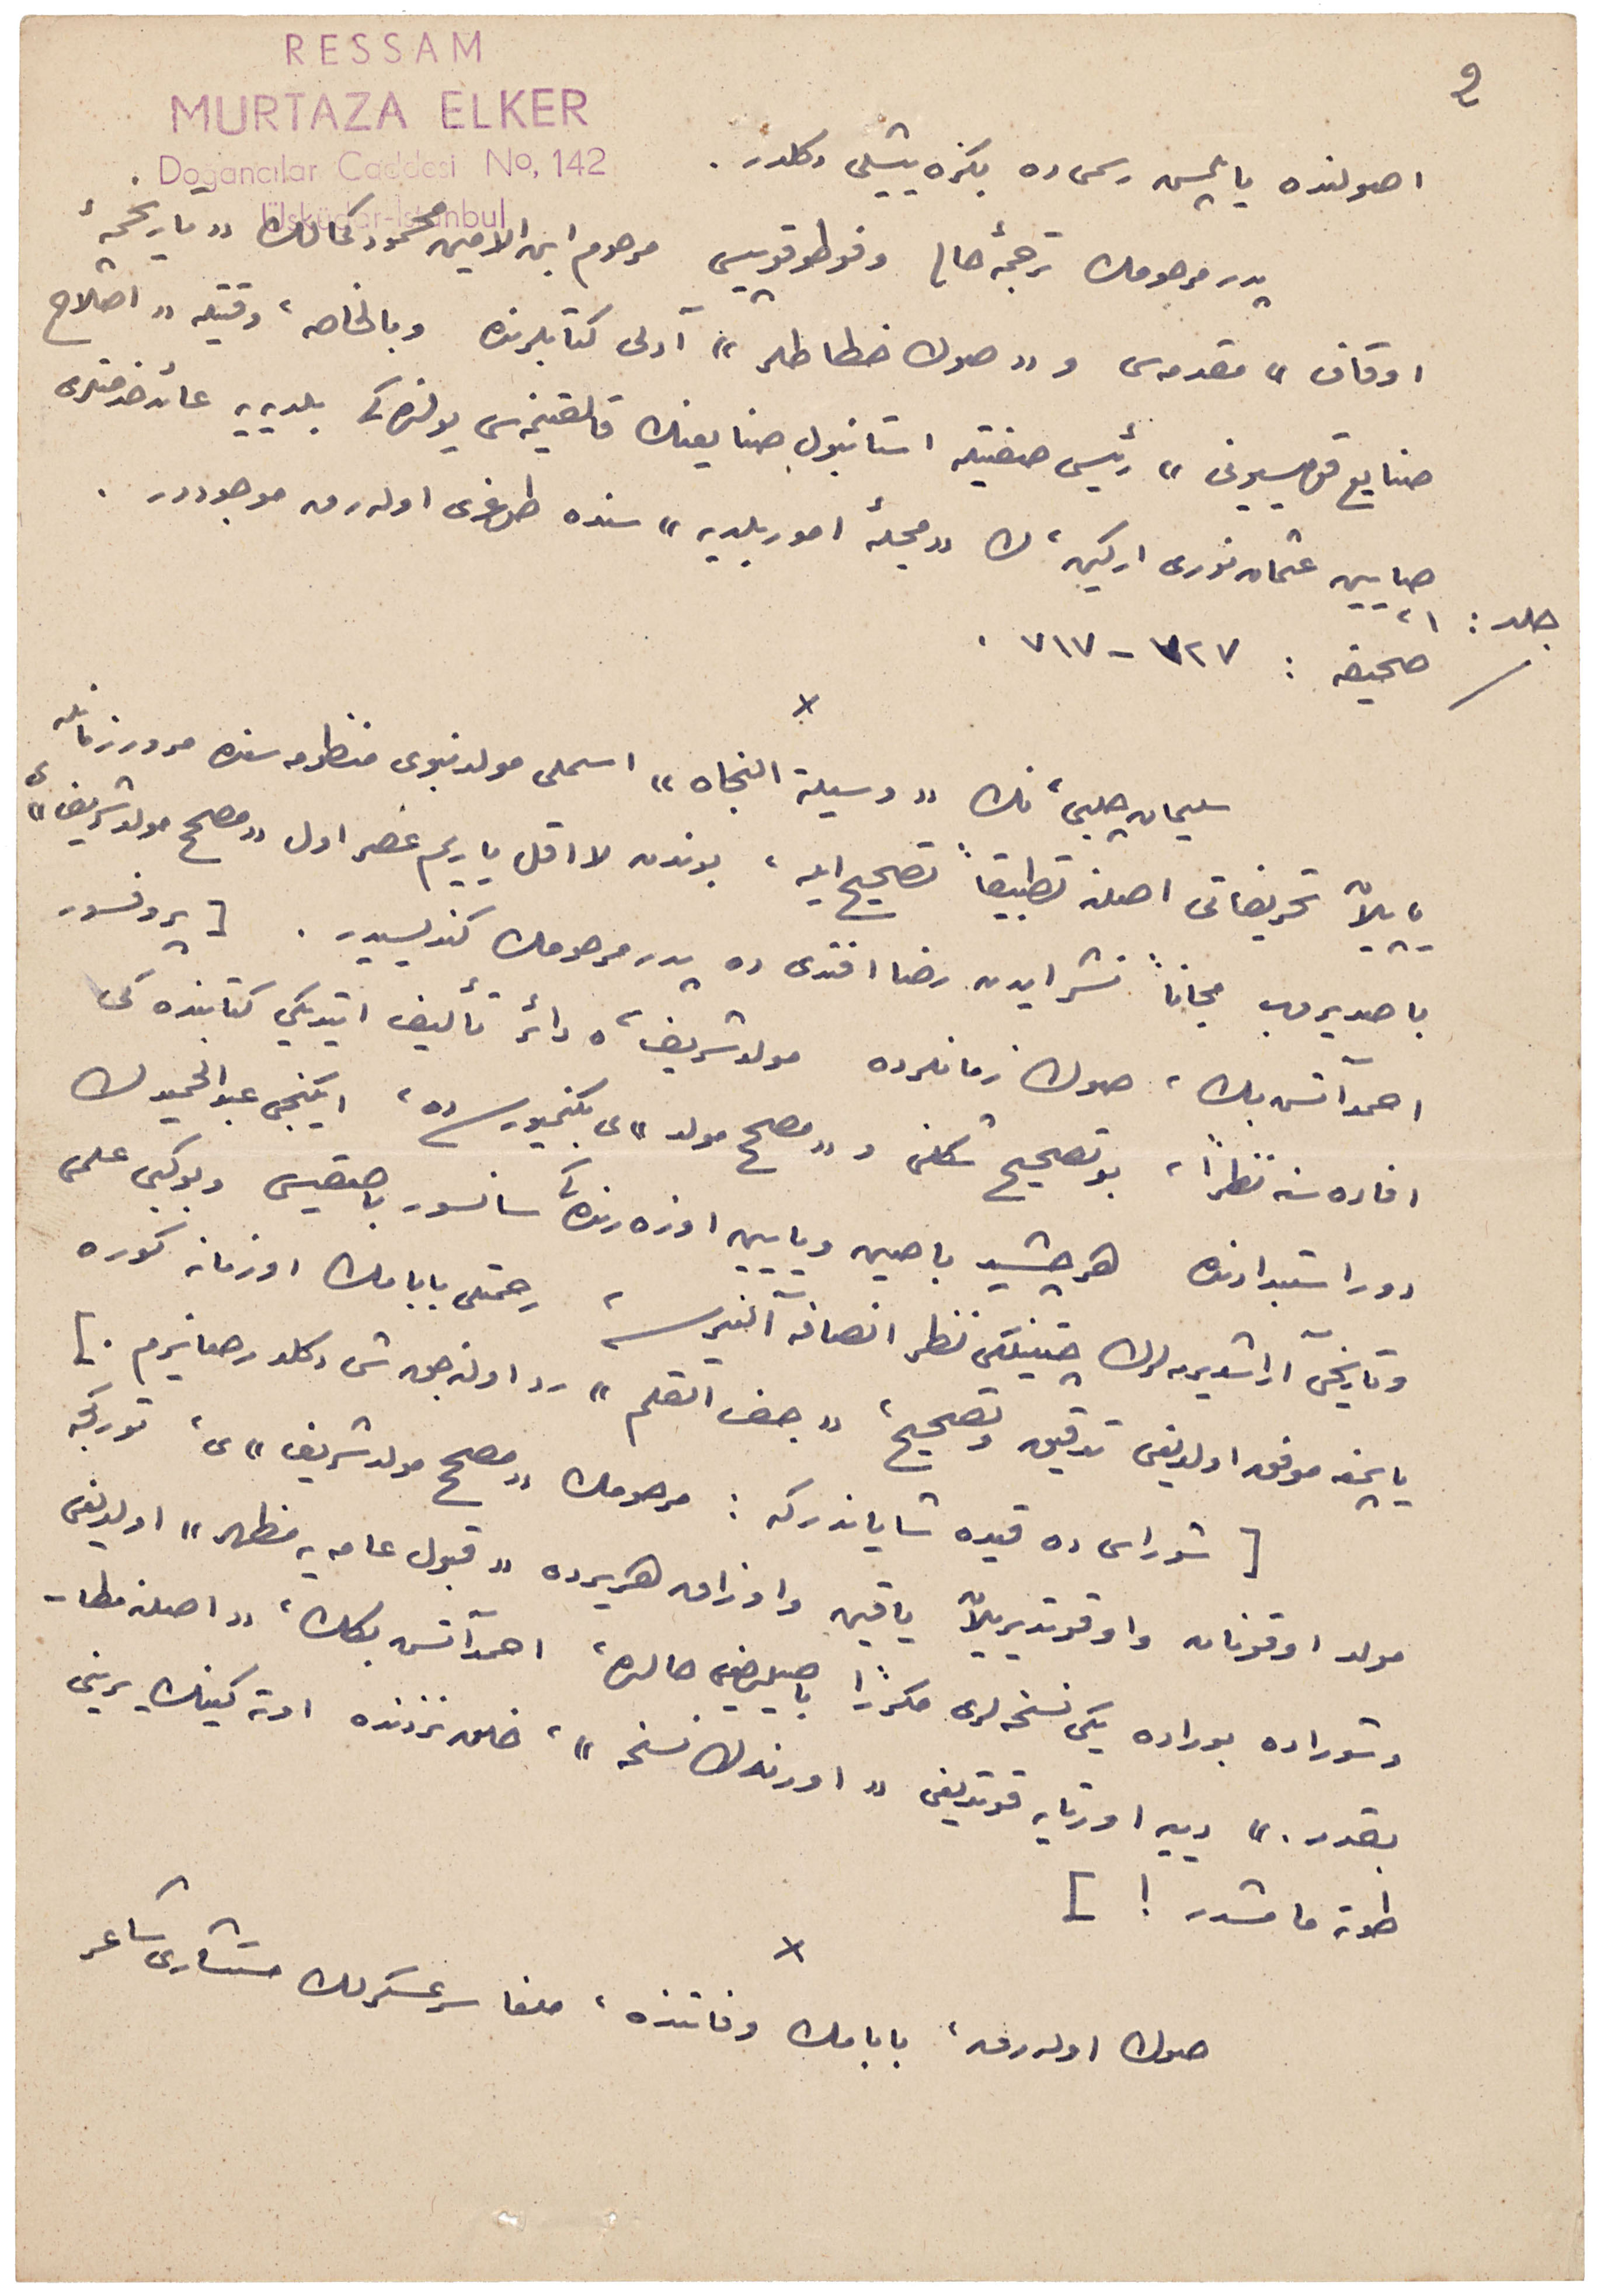 RESSAM
MURTAZA ELKER
Doğancılar Caddesi No, 142
Üsküdar-İstanbul
و
اصولنده یاپلمش رسمی ده بکزه ییشلی دكلدر .
پدر مرحومك ترجمۀ حالی و فوطوقوپیسی مرحوم ابن الامین محمود كمالك « تاریخچۀ
اوقاف » مقدمه‌سی و « صوك خطاطلر » آدلی كتابلرنده وبالخاصه ، وقتیله « اصلاح
صنایع قومیسیونی » رئیسی صفتیله استانبول صنایعنك قالقینمه‌سی یولنده كی بلدیه یه عائد خدمتلری
صایین عثمان نوری اركین ، ك « مجلۀ امور بلدیه » سنده طوغری اوله رق موجوددر .
جلد : ١ ،
صحیفه : ٧٢٧ - ٧١٧ .
×
سلیمان چلبی ، نك « وسیلة النجاه » اسملی مولد نبوی منظومه سنده مرور زمانله
یاپیلان تحریفاتی اصلنه تطبیقاً تصحیح ایله ، بوندن لااقل یاریم عصر اول « مصحح مولد شریف » ی
باصدیروب مجاناً نشر ایدن رضا افندی ده پدر مرحومك كندیسیدر . [ پروفسور
احمد آتش بك ، صوك زمانلرده مولد شریف ، ه دائر تألیف ایتدیكی كتابنده كی
افاده سنه نظراً ، بو تصحیح شكلنی و « مصحح مولد » ی بكنمیورسه ده ، ایكنجی عبدالحمیدك
دور استبدادنده هر چشید باصین و یایین اوزه رنده كی سانسور باصقیسی و بوكبی علمی
و تاریخی آراشدیرمه لرك چتینلكی نظر انصافه آلنیرسه ، رحمتلی بابامك او زمانه كوره
یاپمغه موفق اولدیغی تدقیق و تصحیح ، « جف القلم » رد اولنه جق شی دكلدر صانیرم . ]
[ شوراسی ده قیده شایاندركه : مرحومك « مصحح مولد شریف » ی ، توركجه
مولد اوقونان و اوقوتدیریلان یاقین و اوزاق هر یرده « قبول عامه یه مظهر » اولدیغی
و شوراده بوراده یكی نسخه لری مكرراً باصیلدیغی حالده ، احمد آتش بكك ، « اصلنه مطا-
بقدر . » دییه اورتایه قویدیغی « اورنك نسخه » ، خلق نزدنده اوته كینك یرینی
طوته مامشدر ! ]
×
صوك اوله رق ، بابامك وفاتنده ، سرعسكرلك مستشاری شاعر